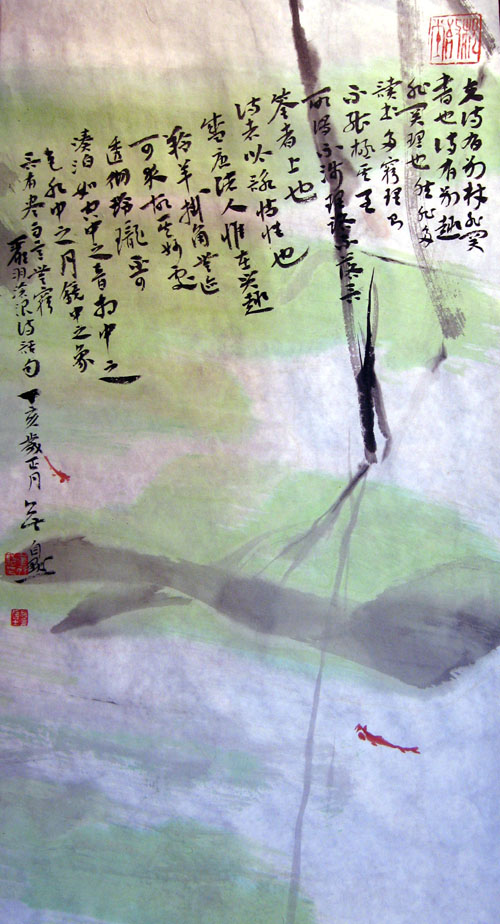 夫詩有別材非關
書也詩有別趣
非關理也然非多
讀書多窮理則
不能極其至
所謂不涉理路不落言
筌者上也
詩者吟詠情性也
盛唐諸人惟在興趣
羚羊掛角無迹
可求故其妙處
透徹玲瓏不可
湊泊如空中之音相中之
色水中之月鏡中之象
言有盡而意無窮
嚴羽滄浪詩話句 丁亥歲正月